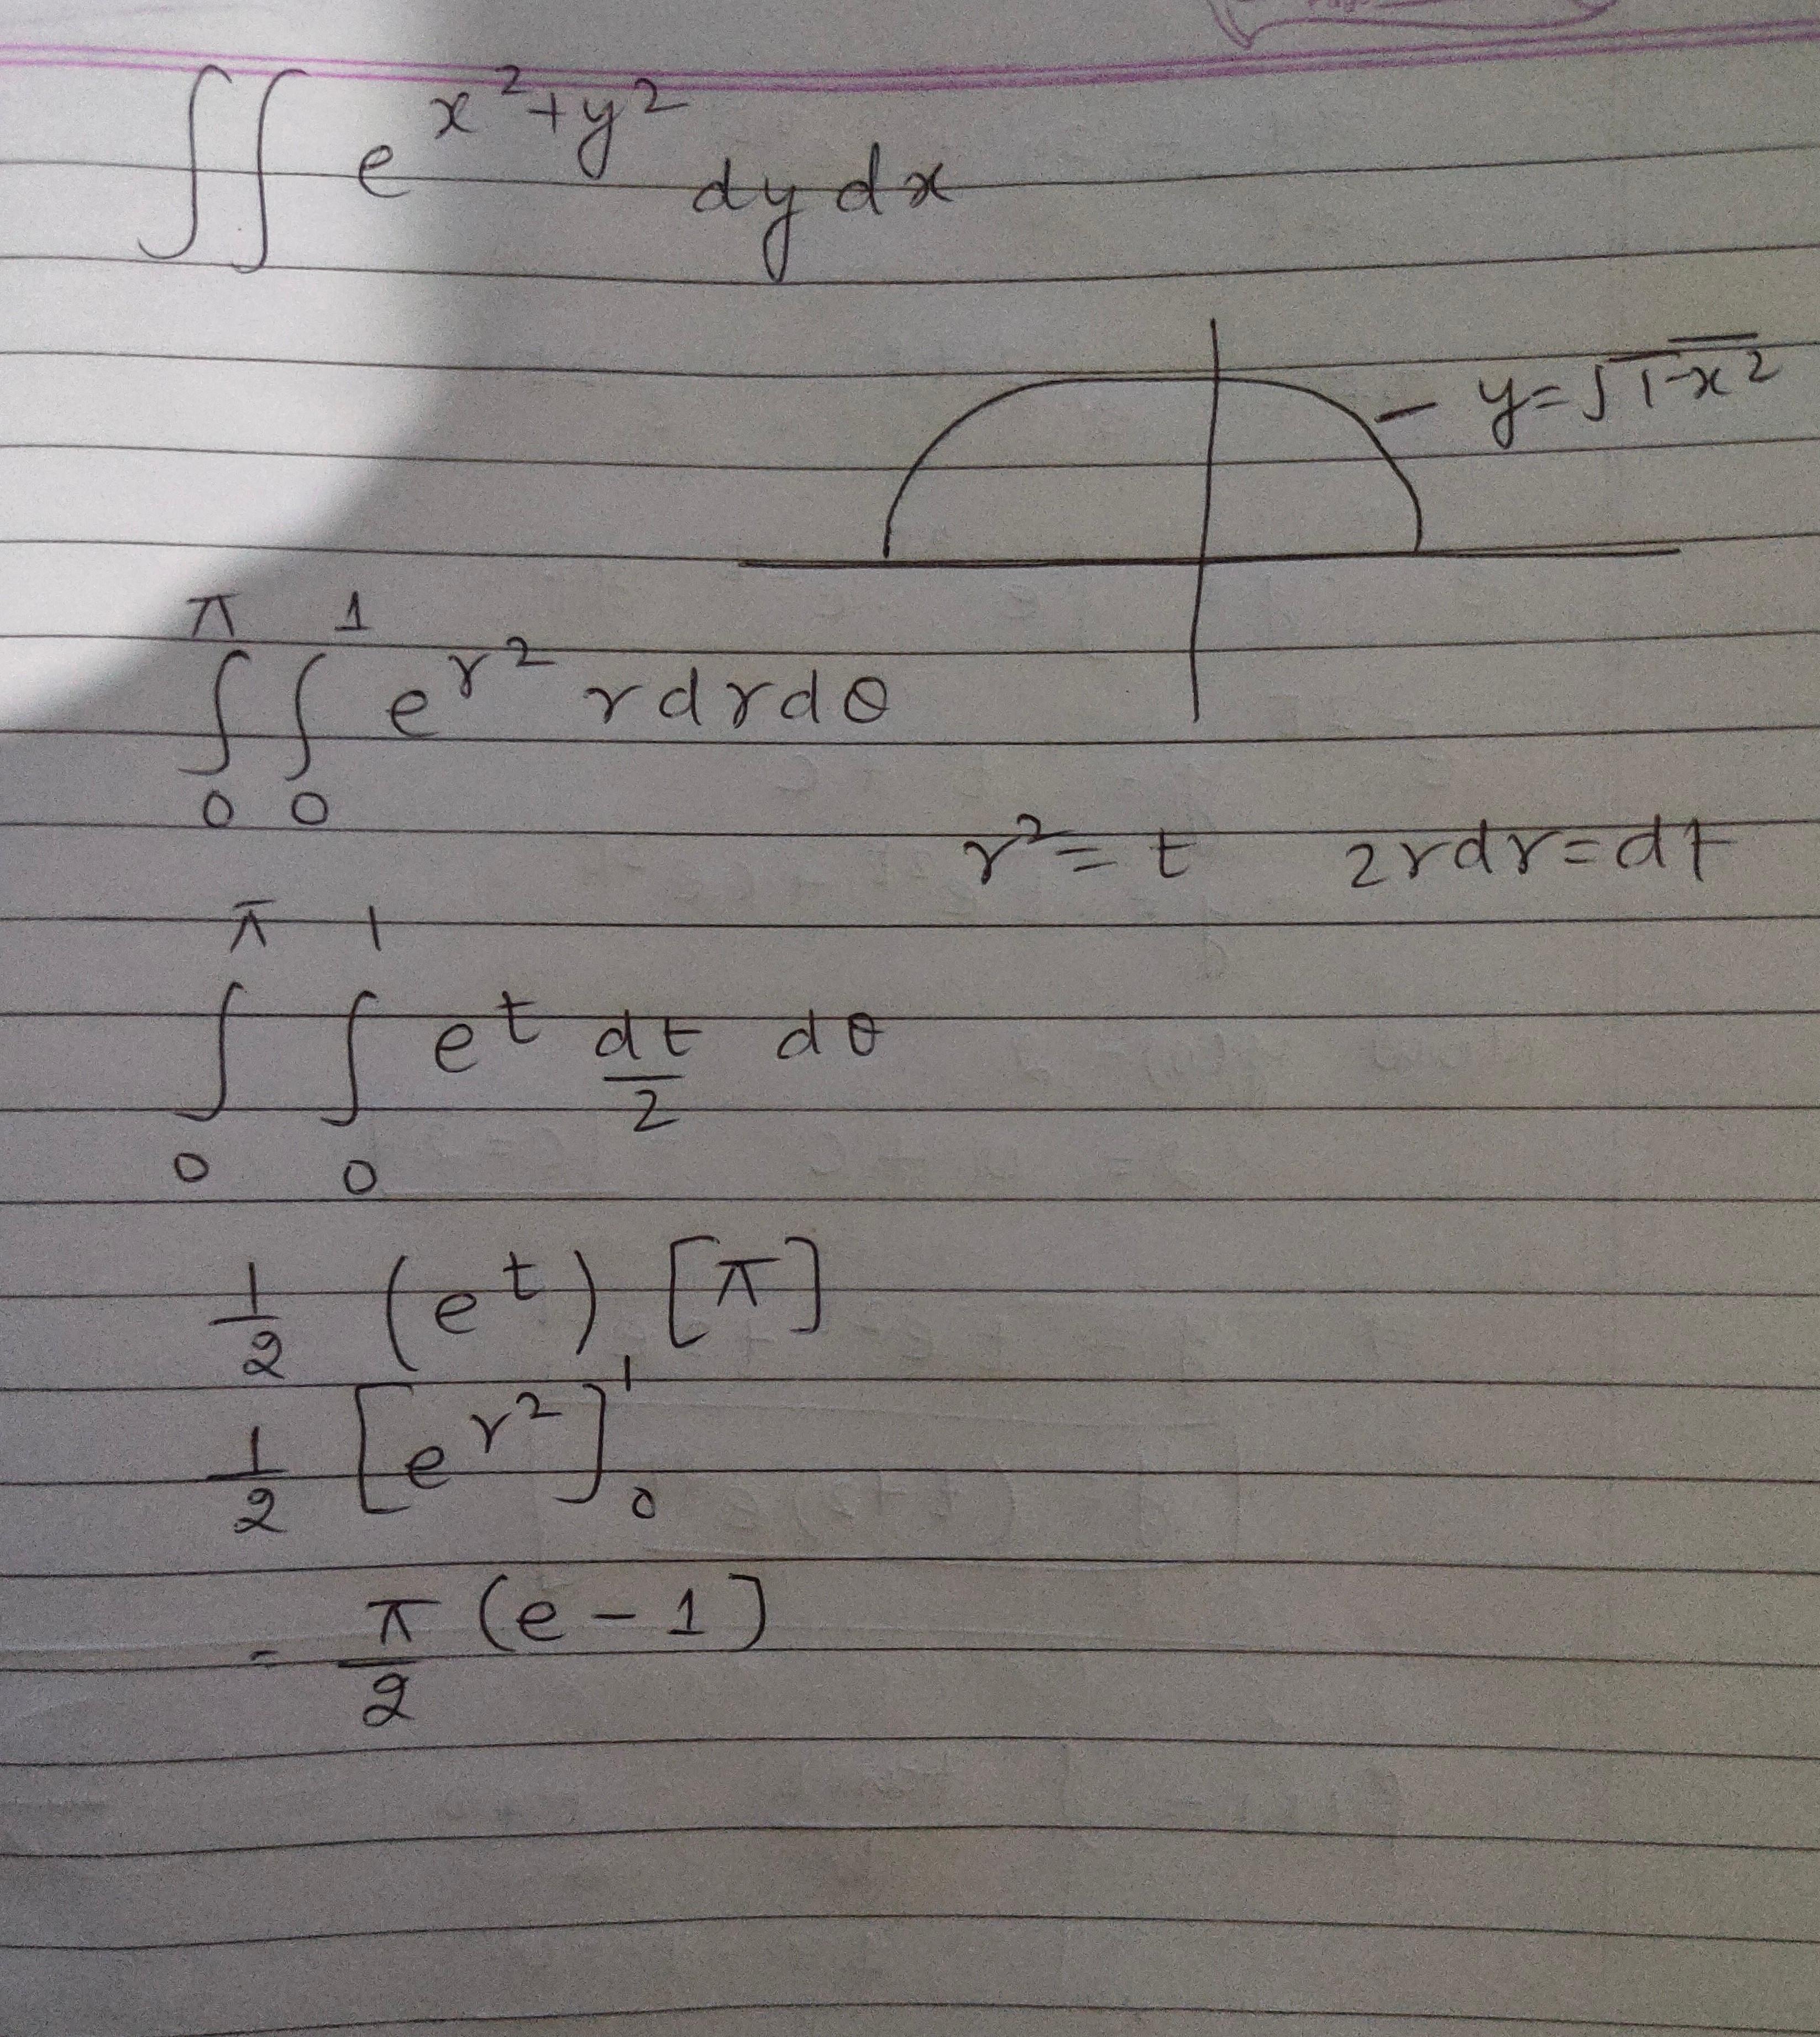 ∫∫ e^{x²+y²} dy dx
— y=√1-x²
π 1
∫ ∫ e^{r²} r d r d θ
0 0
r² = t 2rdr=dt
π 1
∫ ∫ e^t dt/2 dθ
0 0
1/2 (e^t) [π]
1/2 [e^{r²}]₀¹
= π/2 (e - 1)